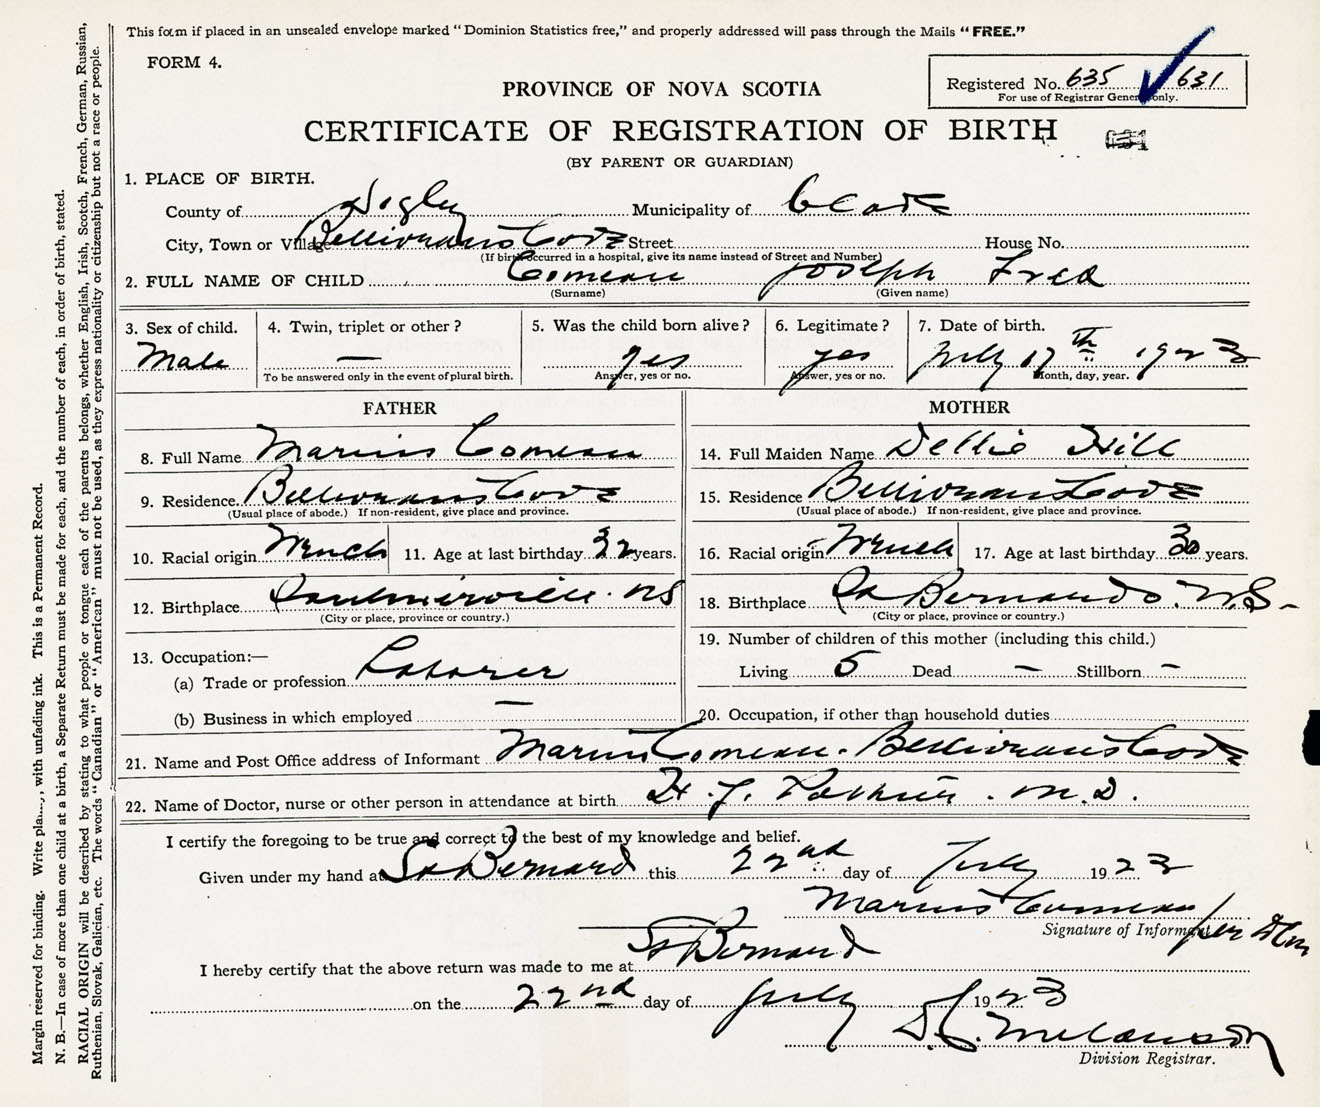 This form if placed in an unsealed envelope marked "Dominion Statistics free," and properly addressed will pass through the Mails "FREE."
FORM 4.
Registered No. 635 631
For use of Registrar General only.
PROVINCE OF NOVA SCOTIA
CERTIFICATE OF REGISTRATION OF BIRTH
(BY PARENT OR GUARDIAN)
1. PLACE OF BIRTH.
County of Digby Municipality of Clare
City, Town or Village Belliveaus Cove Street House No.
(If birth occurred in a hospital, give its name instead of Street and Number)
2. FULL NAME OF CHILD Comeau Joseph Fred
(Surname) (Given name)
3. Sex of child. 4. Twin, triplet or other? 5. Was the child born alive? 6. Legitimate? 7. Date of birth.
Male — yes yes July 17th 1923
To be answered only in the event of plural birth. Answer, yes or no. Answer, yes or no. Month, day, year.
FATHER MOTHER
8. Full Name Marius Comeau 14. Full Maiden Name Dellie Hill
9. Residence Belliveaus Cove 15. Residence Belliveaus Cove
(Usual place of abode.) If non-resident, give place and province. (Usual place of abode.) If non-resident, give place and province.
10. Racial origin French 11. Age at last birthday 32 years. 16. Racial origin French 17. Age at last birthday 30 years.
12. Birthplace Saulnierville. NS 18. Birthplace St Bernards. N.S.
(City or place, province or country.) (City or place, province or country.)
19. Number of children of this mother (including this child.)
13. Occupation:—
(a) Trade or profession Laborer Living 5 Dead — Stillborn —
(b) Business in which employed — 20. Occupation, if other than household duties
21. Name and Post Office address of Informant Marius Comeau. Belliveaus Cove
22. Name of Doctor, nurse or other person in attendance at birth M.D.
I certify the foregoing to be true and correct to the best of my knowledge and belief.
Given under my hand at St Bernard this 22nd day of July 1923
Marius Comeau per
Signature of Informant
I hereby certify that the above return was made to me at St Bernard
on the 22nd day of July 1923
Melanson
Division Registrar.
Margin reserved for binding. Write with unfading ink. This is a Permanent Record.
N. B.—In case of more than one child at a birth, a Separate Return must be made for each, and the number of each, in order of birth, stated.
RACIAL ORIGIN will be described by stating to what people or tongue each of the parents belongs, whether English, Irish, Scotch, French, German, Russian,
Ruthenian, Slovak, Galician, etc. The words "Canadian" or "American" must not be used, as they express nationality or citizenship but not a race or people.